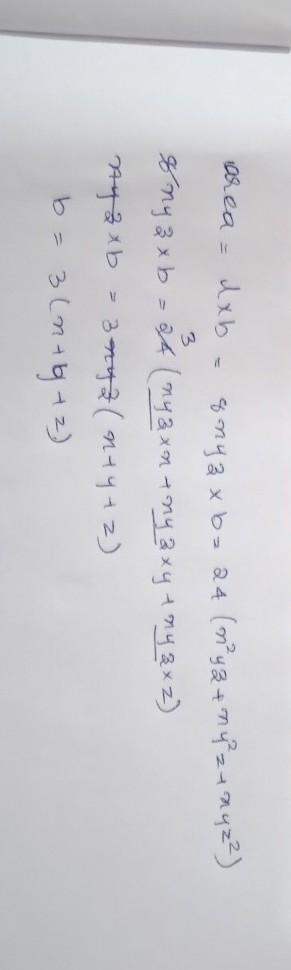 area = l × b = 8xyz × b = 24 (x²yz + xy²z + xyz²)
8xyz × b = 24 3 (xyz × x + xyz × y + xyz × z)
xyz × b = 3xyz (x + y + z)
b = 3 (x + y + z)